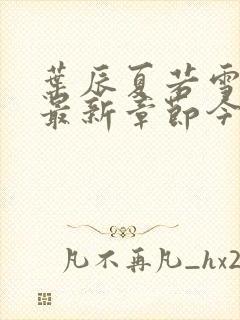 葉辰夏若雪
最新章節今
凡不再凡_hx2